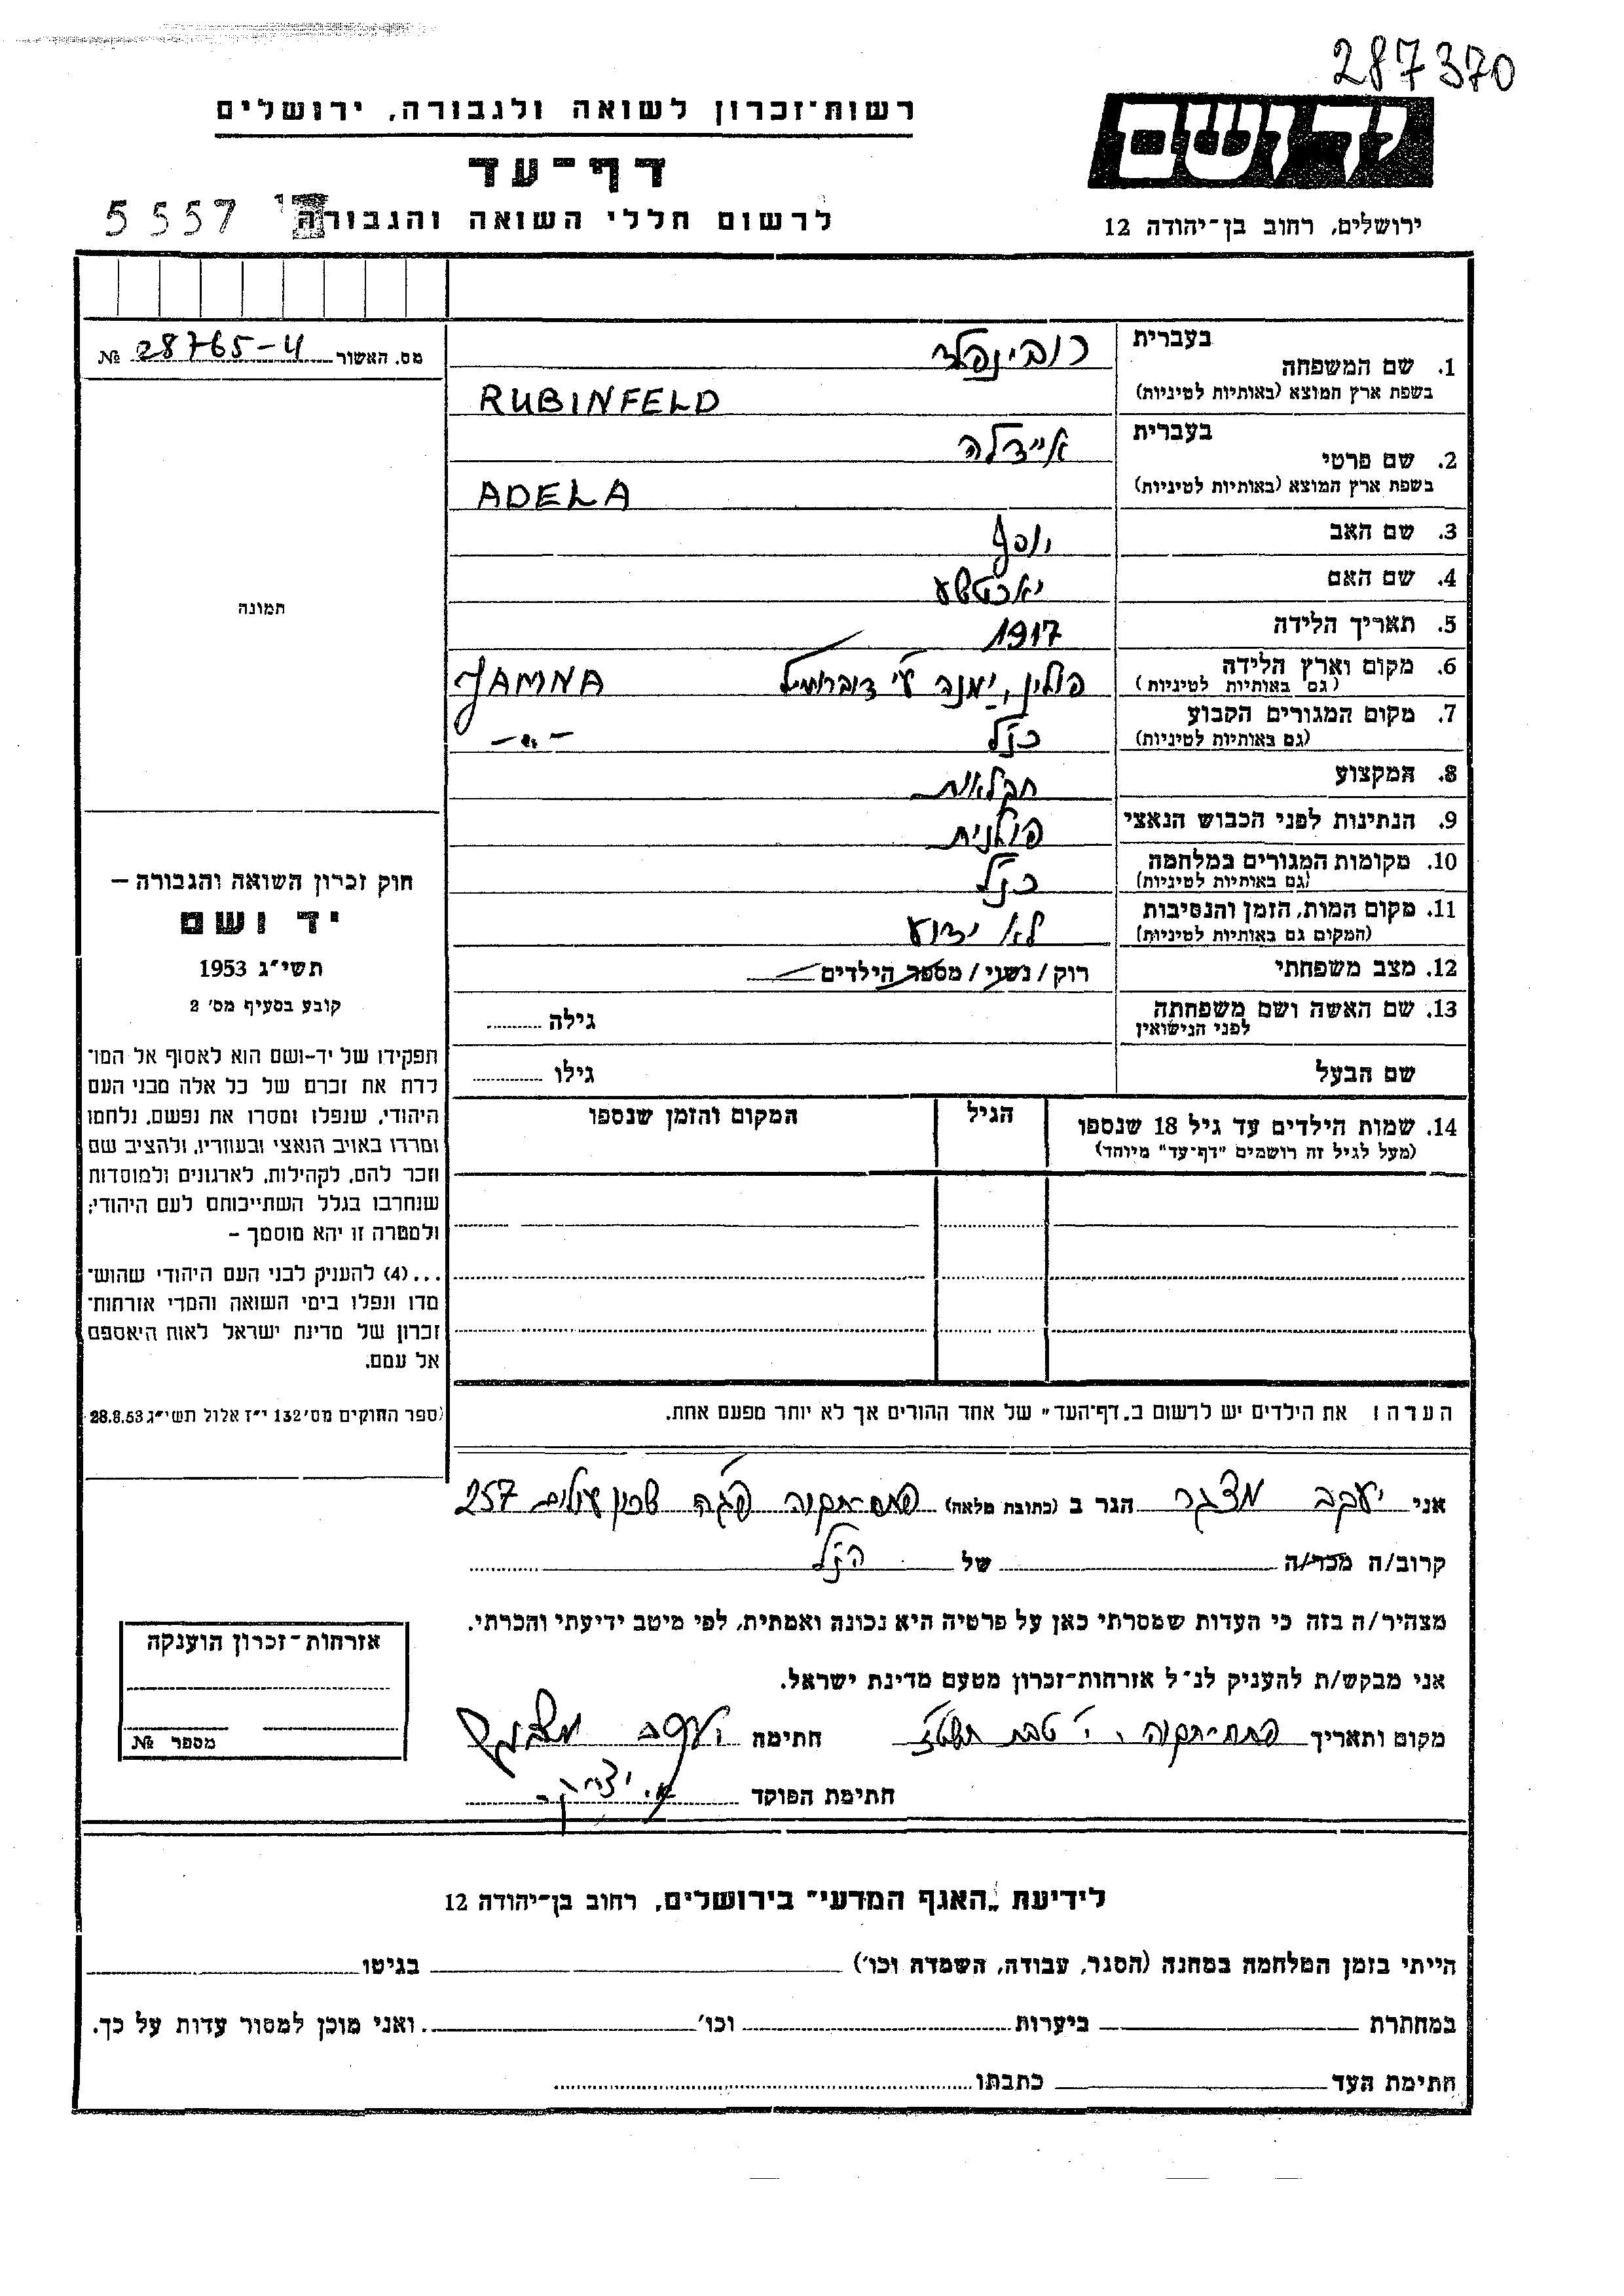 287370
רשות־זכרון לשואה ולגבורה, ירושלים
יד ושם
דף־עד
5557
לרשום חללי השואה והגבורה
ירושלים, רחוב בן־יהודה 12
מס. האשור 28765-4 №
בעברית רובינפלד
1. שם המשפחה
בשפת ארץ המוצא (באותיות לטיניות) RUBINFELD
בעברית איידלה
2. שם פרטי
בשפת ארץ המוצא (באותיות לטיניות) ADELA
3. שם האב יוסף
4. שם האם
5. תאריך הלידה 1917
6. מקום וארץ הלידה פולין, ימנה ע״י JAMNA
(גם באותיות לטיניות)
7. מקום המגורים הקבוע כנ״ל -"-
(גם באותיות לטיניות)
8. המקצוע חקלאות
9. הנתינות לפני הכבוש הנאצי פולנית
10. מקומות המגורים במלחמה כנ״ל
(גם באותיות לטיניות)
11. מקום המות, הזמן והנסיבות לא ידוע
(המקום גם באותיות לטיניות)
12. מצב משפחתי רוק/נשוי/מספר הילדים
13. שם האשה ושם משפחתה גילה
לפני הנישואין
שם הבעל גילו
תמונה
חוק זכרון השואה והגבורה —
יד ושם
תשי״ג 1953
קובע בסעיף מס' 2
תפקידו של יד-ושם הוא לאסוף אל המו־
לדת את זכרם של כל אלה מבני העם
היהודי, שנפלו ומסרו את נפשם, נלחמו
ומרדו באויב הנאצי ובעוזריו, ולהציב שם
וזכר להם, לקהילות, לארגונים ולמוסדות
שנחרבו בגלל השתייכותם לעם היהודי;
ולמטרה זו יהא מוסמך –
...(4) להעניק לבני העם היהודי שהוש־
מדו ונפלו בימי השואה והמרי אזרחות־
זכרון של מדינת ישראל לאות היאספם
אל עמם.
(ספר החוקים מס' 132 י״ז אלול תשי״ג 28.8.53
14. שמות הילדים עד גיל 18 שנספו הגיל המקום והזמן שנספו
(מעל לגיל זה רושמים "דף־עד" מיוחד)
הערה: את הילדים יש לרשום ב„דף־העד" של אחד ההורים אך לא יותר מפעם אחת.
אני יעקב מצגר הגר ב (כתובת מלאה) פתח-תקוה פגה שכון עולים 257
קרוב/ה מכר/ה של הנ״ל
מצהיר/ה בזה כי העדות שמסרתי כאן על פרטיה היא נכונה ואמתית, לפי מיטב ידיעתי והכרתי.
אני מבקש/ת להעניק לנ״ל אזרחות־זכרון מטעם מדינת ישראל.
מקום ותאריך פתח-תקוה, י' טבת חתימה יעקב מצגר
חתימת הפוקד
אזרחות־זכרון הוענקה
מספר №
לידיעת „האגף המדעי" בירושלים, רחוב בן־יהודה 12
הייתי בזמן המלחמה במחנה (הסגר, עבודה, השמדה וכו') בגיטו
במחתרת ביערות וכו' ואני מוכן למסור עדות על כך.
חתימת העד כתבתו